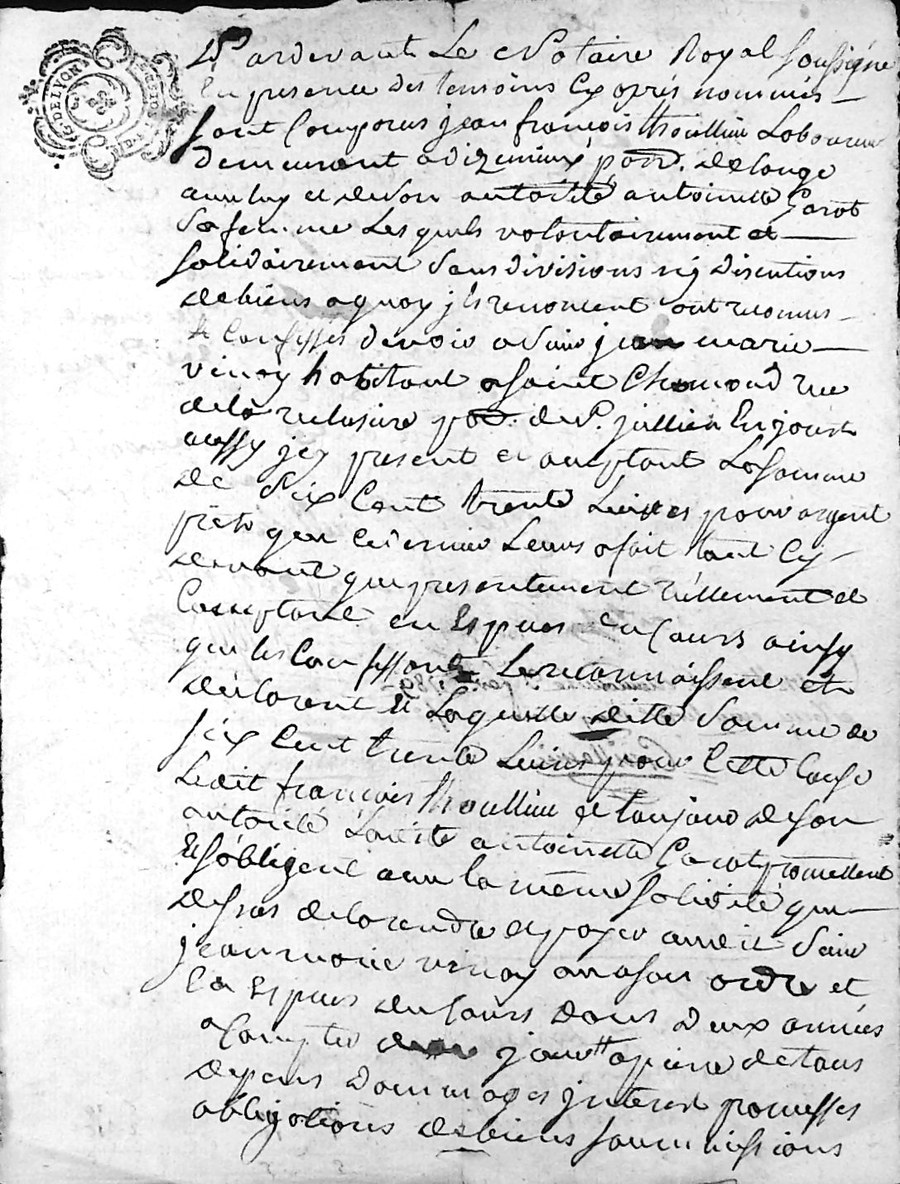 Pardevant Le Notaire Royal soussigné
En presence des temoins Cy après nommés
sont Comparus jean françois thoullieu Laboureur
demeurant a dizimieux parr. de longe
avec luy et de son autorité antoinette Garot
Sa femme Les quels volontairement et
solidairement sans divisions nij discutions
de biens a quoy jls renoncent ont reconnus
et Confessés devoir a Sieur jean marie
vinoy habitant a saint Chamond rue
de la par. de St. jullien En jarest
aussy jcy present et acceptant La somme
de Six Cent trente Livres pour argent
prêté que ce dernier Leurs a fait tant Cy
devant que presentement réellement et
Comptant en Especes du Cours ainsy
qu'ils Confessent Le reconnoissent et
déclarent et Laquelle ditte Somme de
six Cent trente Livres pour Cette Cause
Ledit françois thoullieu et toujours de son
autorité Laditte antoinette Garot promettent
et s'obligent avec la même solidité que
dessus de la rendre et payer audit Sieur
jean marie vinoy ou a son ordre et
En Especes du Cours dans deux années
a Compter de ce jourd'huy a peine de tous
depens dommages jnterest promesses
obligations de biens soumissions